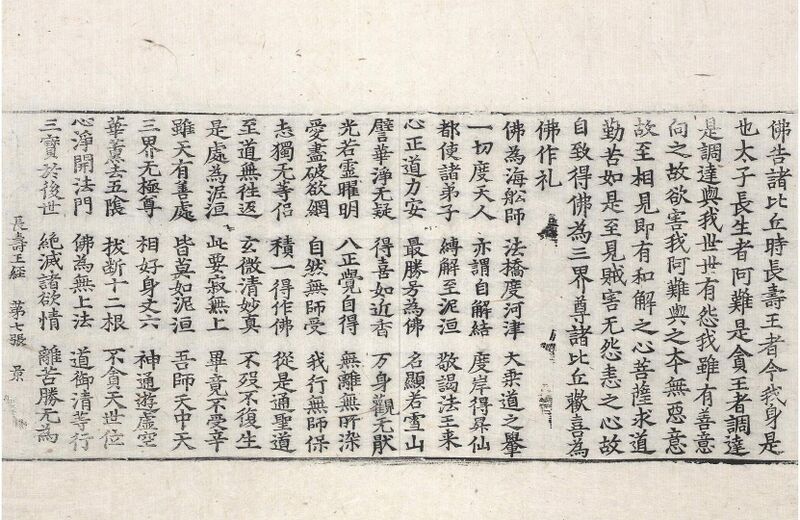 佛告諸比丘時長壽王者今我身是
也太子長生者阿難是貪王者調達
是調達與我世世有怨我雖有善意
向之故欲害我阿難與之本無惡意
故至相見即有和解之心菩薩求道
勤苦如是至見賊害无怨恚之心故
自致得佛為三界尊諸比丘歡喜為
佛作礼
佛為海舩師 法橋度河津 大乗道之轝
一切度天人 亦謂自解結 度岸得昇仙
都使諸弟子 縛解至泥洹 敬謁法王来
心正道力安 最勝芳為佛 名顯若雪山
譬華淨无疑 得喜如近香 万身觀无猒
光若靈曜明 八正覺自得 無離無所深
愛盡破欲網 自然無師受 我行無師保
志獨无等侣 積一得作佛 從是通聖道
至道無往返 玄微清妙真 不殁不復生
是處為泥洹 此要寂無上 畢竟不受辛
雖天有善處 皆莫如泥洹 吾師天中天
三界无極尊 相好身丈六 神通遊虛空
華薰去五陰 拔断十二根 不貪天世位
心淨開法門 佛為無上法 道御清等行
三寶於後世 絶滅諸欲情 離苦勝无為
長壽王經 第七張 景